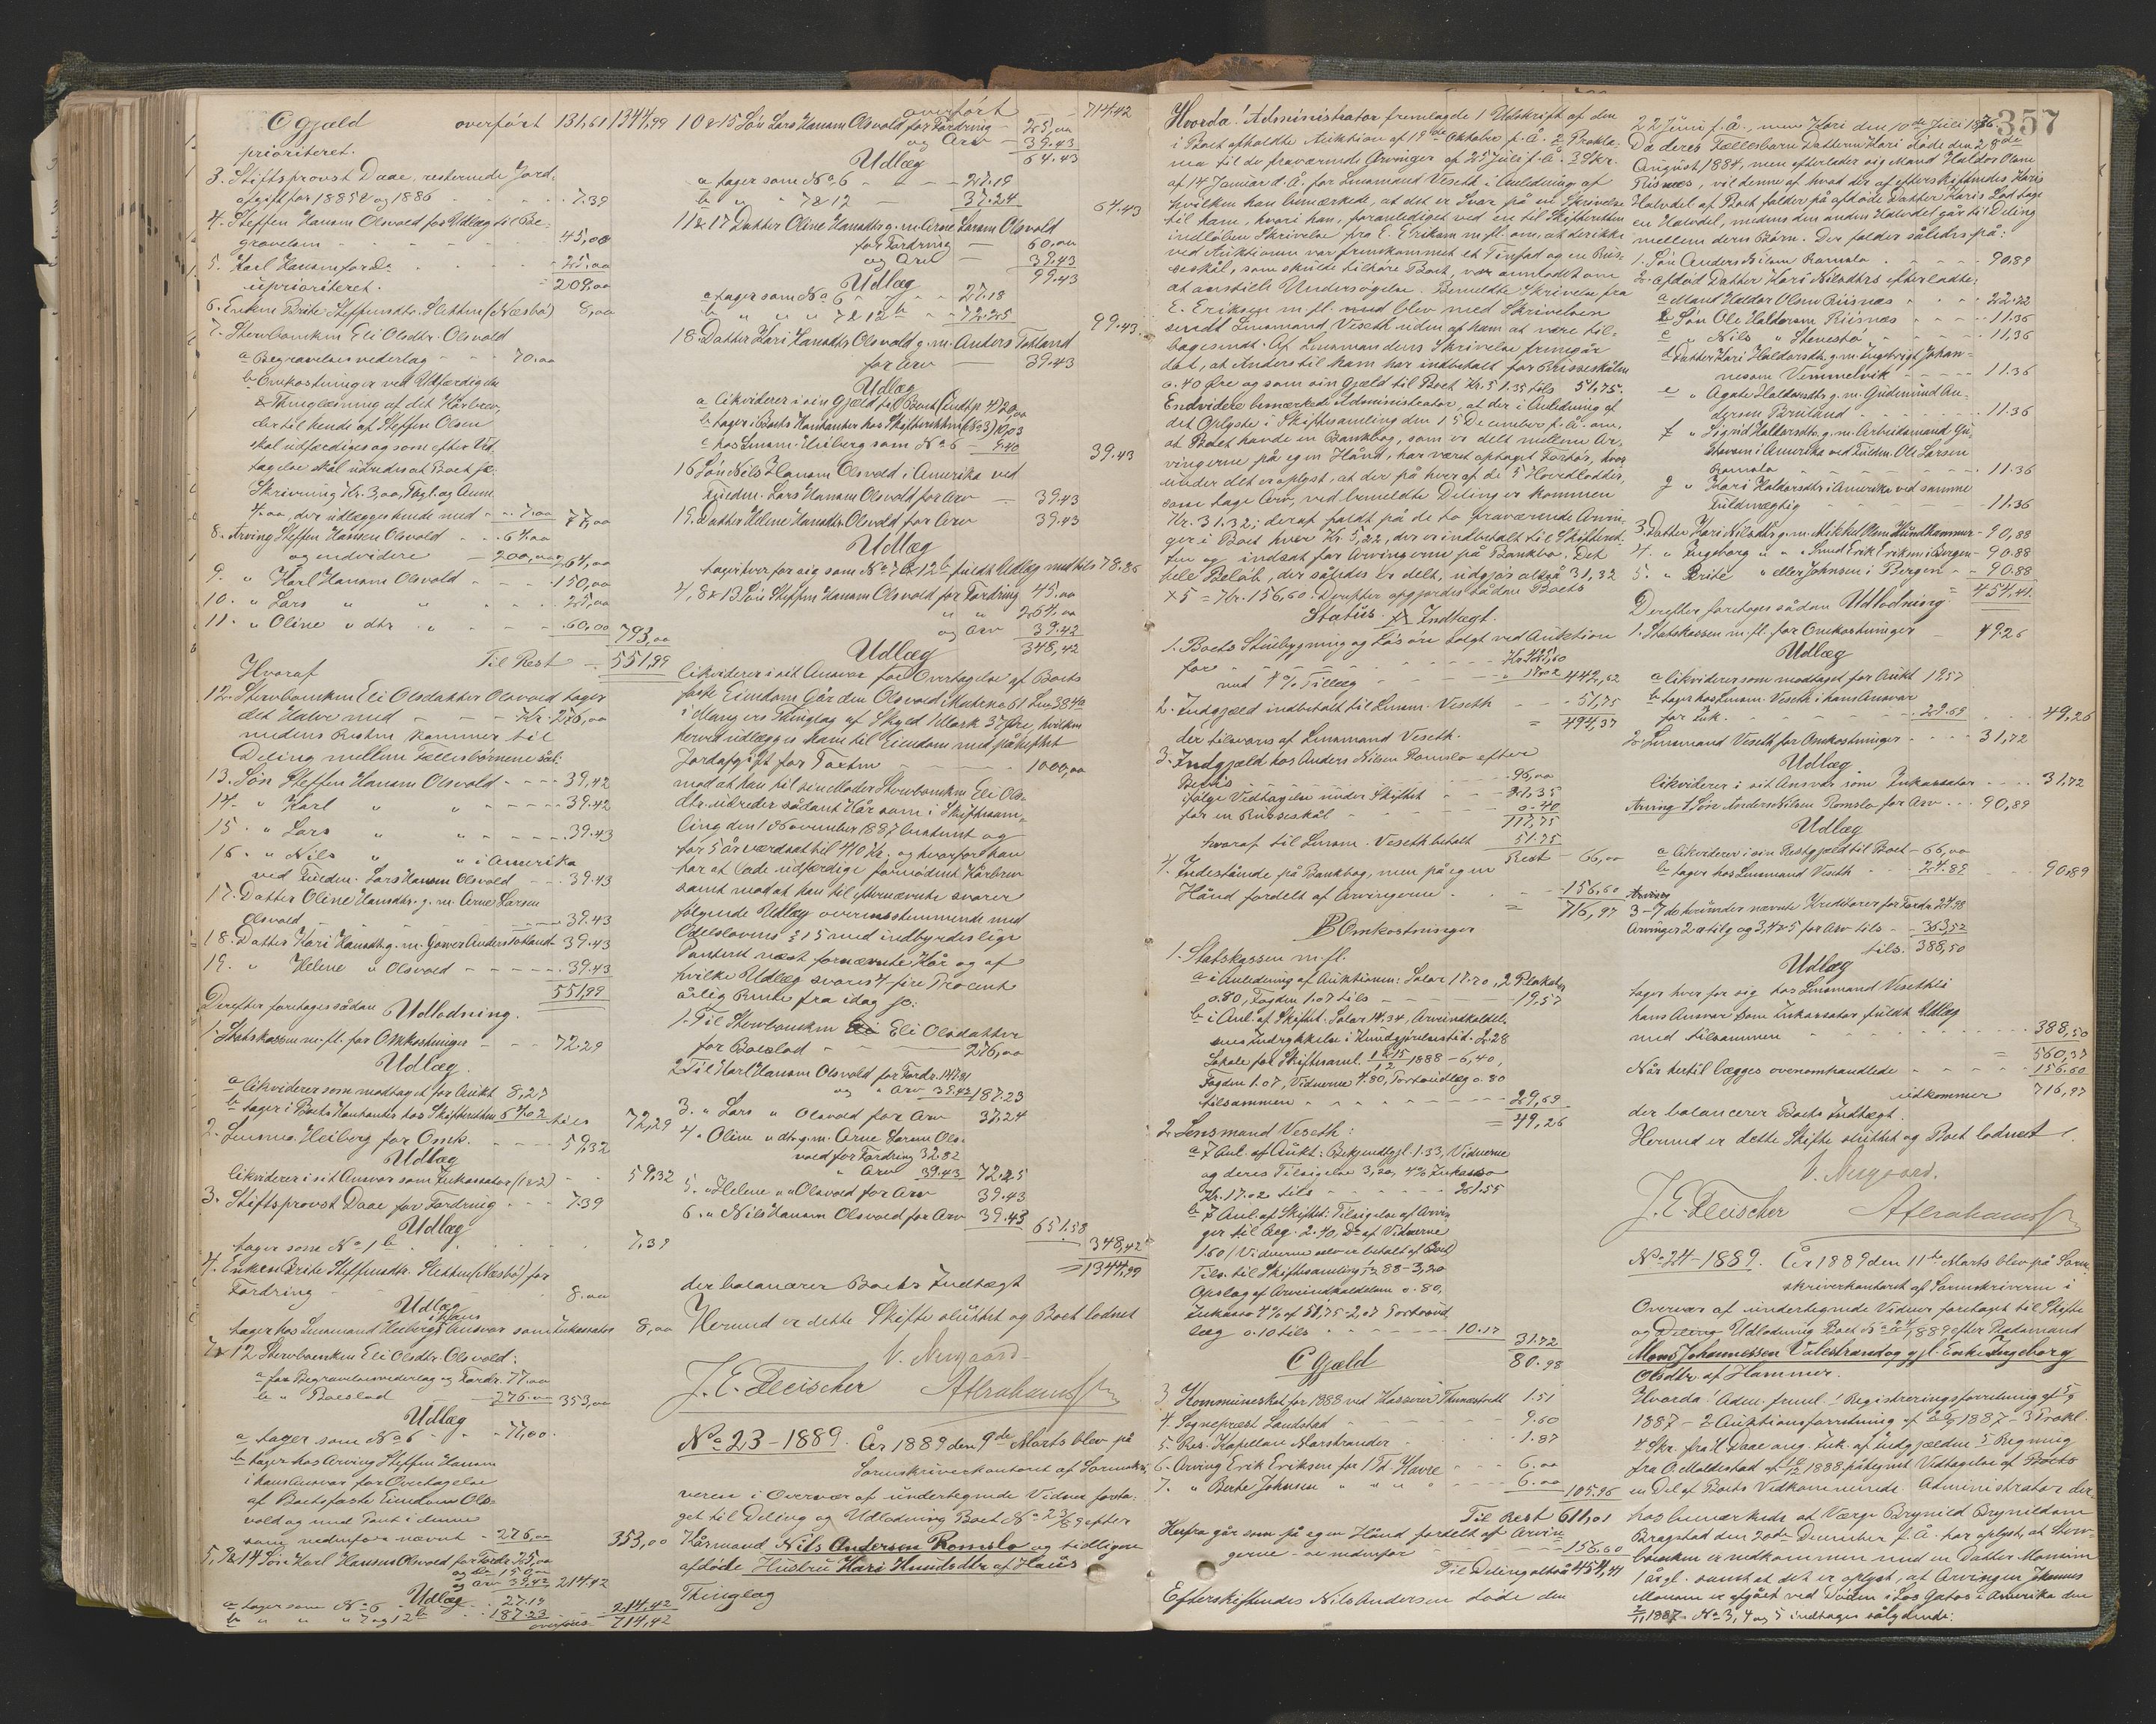 C Gjæld overført 131,61 1344,99
prioriteret.
3. Stiftsprovst Daae, resterende Jord-
afgift for 1885 & og 1886 - - 7.39
4. Steffen Hansen Olsvold for Udlæg til Be-
gravelsen - - - 45,00
5. Karl Hansen for Do - - 25,00
= 209,00
uprioriteret.
6. Enken Brite Steffensdtr. Sletten (Næsbø) 8,00
7. Stervboenken Eli Olsdtr. Olsvold
a Begravelsesvederlag - - 70.00
b Omkostninger ved Udfærdigelse
& Thinglæsning af det Kårbrev,
der til hende af Steffen Olsen
skal udfærdiges og som efter Ved-
tagelse skal udredes at Boet fx.
Skrivning Kr. 3,00, Thgl. og Anm.
4.00, der udlægges hende med - - 7.00 77,00
8. Arving Steffen Hansen Olsvold - - 64.00
og endvidere - 200,00 264,00
9. " Karl Hansen Olsvold - - - 150,00
10. " Lars " " - - - 25,00
11. " Oline " dtr. " - - - 60,00 793,00
Til Rest - 551,99
Hvoraf
12. Stervboenken Eli Olsdatter Olsvold tager
det Halve med - - - Kr. 276,00
medens Resten kommer til
Deling mellem Fællesbørnene såt:
13. Søn Steffen Hansen Olsvold - - - 39,42
14. " Karl " " - - - - 39.42
15. " Lars " " - - - - 39.43
16. " Nils " " i Amerika
ved Fuldm. Lars Hansen Olsvold - - 39.43
17. Datter Oline Hansdtr. g. m. Arne Larsen
Olsvold - - - - 39.43
18. Datter Kari Hansdtr. g. m. Anders Totland 39.43
19. " Helene " Olsvold - - - - - 39.43
551,99
Derefter foretages sådan Udlodning.
1. Statskassen m. fl. for Omkostninger - - - 72.29
Udlæg.
a likviderer som modtaget for Aukt 8,27
b tager i Boets Kontanter hos Skifteretten 64.02 tils 72,29
2. Lensmd. Heiberg for Omk. - - - - 59,32
Udlæg
likviderer i sit Ansvar som Inkassator (1 & 2) - - 59,32
3. Stiftsprovst Daae for Fordring - - - 7.39
Udlæg
tager som No 1 b - - - 7,39
4. Enken Brite Steffensdtr. Sletten (Næsbø) for
Fordring - - - 8.00
Udlæg
tager hos Lensmand Heiberg i hans Ansvar som Inkassator 8,00
7 & 12 Stervboenken Eli Olsdtr. Olsvold:
a for Begravelsesvederlag og Fordr. 77,00
b " Boeslod - 276.00 353,00
Udlæg
a tager som No 6 - - - 77,00.
b tager hos Arving Steffen Hansen
i hans Ansvar for Overtagelse
af Boets faste Eiendom Ols-
vold og med Pant i denne
som nedenfor nævnt - 276,00 353,00
5, 9 & 14 Søn Karl Hansen Olsvold for Fordr. 25,00
og do 150,00
og Arv 39,42 214.42
Udlæg
a tager som No 6 - 27.19
b " " " 7 og 12 b - 187.23 214,42
overføres 714,42
overført 714.42
10 & 15 Søn Lars Hansen Olsvold for Fordring - 25,00
og Arv - 39.43
64.43
Udlæg
a tager som No 6 - - - 27.19
b " " 7 & 12 - - 37.24 64.43
11 & 17 Datter Oline Hansdtr. g. m. Arne Larsen Olsvold
for Fordring - 60,00
og Arv - 39.43
99.43
Udlæg
a tager som No 6 " " - 27.18
b " " " 7 & 12 b - - 72.25 99.43
18. Datter Kari Hansdtr. Olsvold g. m. Anders Totland
for Arv - 39.43
Udlæg
a likviderer i sin Gjæld til Boet (Indt. p. 4) 20,00
b tager i Boets Kontanter hos Skifteretten (No 3) 10,03
c hos Lensm. Heiberg som No 6 - 9.40 39.43
16 Søn Nils Hansen Olsvold i Amerika ved
Fuldm. Lars Hansen Olsvold for Arv - 39.43
19. Datter Helene Hansdtr. Olsvold for Arv 39.43
Udlæg
tager hver for sig som No 7 & 12 b fuldt Udlæg med tils 78.86
4, 8 & 13 Søn Steffen Hansen Olsvold for Fordring 45.00
" " 264,00
og Arv 39.42
348,42
Udlæg
likviderer i sit Ansvar for Overtagelse af Boets
faste Eiendom Gården Olsvold Matr. No 61 Lno 384a
i Mangers Thinglag af Skyld 1 Mark 37 Øre, hvilken
herved udlægges ham til Eiendom med påheftet
Jordafgift for Taxten - - - 1000,00
mod at han til sin Moder Stervboenken Eli Ols-
dtr. udreder sådant Kår som i Skiftesam-
ling den 1 November 1887 bestemt og
for 5 år værdsat til 410 Kr. og hvorfor han
har at lade udfærdige fornødent Kårbrev
samt mod at han til efternævnte svarer
følgende Udlæg overensstemmende med
Odelslovens § 15 med indbyrdes lige
Panteret næst fornævnte Kår og af
hvilke Udlæg svares 4-fire Procent
årlig Rente fra idag fx:
1. Til Stervboenken Eli Olsdatter
for Boeslod - - - 276,00
2 Til Karl Hansen Olsvold for Fordr. 147.81
og " Arv 39.42 187.23
3. " Lars " Olsvold for Arv 37.24
4. " Oline " dtr. g. m. Arne Larsen Ols-
vold for Fordring 32.82
" Arv 39.43 72.25
5. " Helene " " Olsvold for Arv 39.43
6. " Nils Hansen Olsvold for Arv 39.43 651.58
348,42
= 1344,99
der balancerer Boets Indtægt
Hermed er dette Skifte sluttet og Boet loddet
V. Nergaard.
J. E. Fleischer Abrahamss
No 23-1889. År 1889 den 9de Marts blev på
Sorenskriverkontoret af Sorenskri-
veren i Overvær af undertegnede Vidner foreta-
get til Deling og Udlodning Boet No 23/89 efter
Kårmand Nils Andersen Romslo og tidligere
afdøde Hustru Kari Knudsdtr. af Haus
Thinglag
357
Hvorda: Administrator fremlagde 1 Udskrift af den
i Boet afholdte Auktion af 19de Oktober f. Å. 2 Prokla-
ma til de fraværende Arvinger af 25 Juli f. Å. 3 Skr.
af 14 Januar d. Å. fra Lensmand Veseth i Anledning af
hvilken han bemærkede, at det er Svar på en Skrivelse
til ham, hvori han, foranlediget ved en til Skifteretten
indløben Skrivelse fra E. Eriksen m. fl. om, at der ikke
ved Auktionen var fremkommet et Tinfad og en Rus-
seskål, som skulde tilhøre Boet, var anmodet om
at anstille Undersøgelse. Bemeldte Skrivelse fra
E. Eriksen m. fl. med blev med Skrivelsen
sendt Lensmand Veseth uden af ham at være til-
bagesendt. Af Lensmandens Skrivelse fremgår
det, at Anders til ham har indbetalt for Russeskålen
0.40 Øre og som sin Gjæld til Boet Kr. 51.35 tils 51,75.
Endvidere bemærkede Administrator, at der i Anledning af
det Oplyste i Skiftesamling den 15 December f. Å. om,
at Boet havde en Bankbog, som er delt mellem Ar-
vingerne på egen Hånd, har været optaget Forhør, hvor-
under det er oplyst, at der på hver af de 5 Hovedlodder,
som tage Arv, ved bemeldte Deling er kommen
Kr. 31.32; deraf faldt på de to fraværende Arvin-
ger i Boet hver Kr. 5,22, der er indbetalt til Skifteret-
ten og indsat for Arvingerne på Bankbo. Det
hele Beløb, der således er delt, udgjør altså 31,32
x 5 = Kr. 156,60. Derefter opgjordes sådan Boets
Status. A Indtægt.
1. Boets Stuebygning og Løsøre solgt ved Auktion
for - - - - Kr. 425,60
med 4% Tillæg - - " 17.02 442,62
2. Indgjæld indbetalt til Lensm. Veseth - - - 51,75
= 494,37
der tilsvares af Lensmand Veseth.
3. Indgjæld hos Anders Nilsen Romslo efter
Bevis - - - 96,00
ifølge Vedtagelse under Skiftet - - 21,35
for en Russeskål - - - 0.40
117,75
hvoraf til Lensm. Veseth betalt 51.75
Rest - 66,00
4. Indestående på Bankbog, men på egen
Hånd fordelt af Arvingerne - - - 156,60
= 716,97
B Omkostninger
1. Statskassen m. fl.
a i Anledning af Auktionen: Salær 17.70, 2 Plakater
0.80, Fogden 1.07 tils - - - 19,57
b i Anl. af Skiftet. Salær 14.34, Arveindkaldel-
sens Indrykkelse i Kundgjørelsestid. 2.28
Lokale for Skiftesaml. 15/12 1888 - 6,40,
Fogden 1.07, Vidnerne 4.80, Portoudlæg 0.80
tilsammen - - - - 29,69
= 49,26
2. Lensmand Veseth:
a I Anl. af Aukt: Bekjendtgj. 1.33, Vidnerne
og deres Tilsigelse 3,20, 4% Inkasso
Kr. 17.02 tils - - - 21.55
b I Anl. af Skiftet: Tilsigelse af Arvin-
ger til Reg. 2.40, Do af Vidnerne
1.60 (Vidnerne selv er betalt af Boet)
Tils. til Skiftesamling 15/12 88 - 3,20
Opslag af Arveindkaldelsen 0.80,
Inkasso 4% af 51,75 - 2.07 Portoud-
læg 0.10 tils - - - 10.17 31.72
80.98
C Gjæld
3 Kommuneskat for 1888 ved Kasserer Thunestvedt 1.51
4. Sognepræst Landstad - - - 9.60
5. Res. Kapellan Marstrander - - - 1.87
6. Arving Erik Eriksen for 1 Td. Havre - - - 6.00
7. " Berte Johnsen " " " " - - - 6.00 105.96
Til Rest 611,01
Herfra går som på egen Hånd fordelt af Arvin-
gerne - se nedenfor - - - 156.60
Til Deling altså 454,41
Efterskiftendes Nils Andersen døde den
22 Juni f. Å., men Kari den 10de Juli 1876.
Da deres Fællesbarn Datteren Kari døde den 28de
August 1884, men efterlader sig Mand Haldor Olsen
Risnæs, vil denne af hvad der af efterskiftendes Karis
Halvdel af Boet falder på afdøde Datter Karis Lod tage
en Halvdel, medens den anden Halvdel går til Deling
mellem deres Børn. Der falder således på:
1. Søn Anders Nilsen Romslo - - - 90.89
2. afdød Datter Kari Nilsdtrs efterladte:
a Mand Haldor Olsen Riisnæs - - - 22.72
b Søn Ole Haldorsen Riisnæs - - - 11.36
c " Nils " Stenestø - - - 11,36
d Datter Kari Haldorsdtr. g. m. Ingebrigt Johan-
nesen Vemmelvik - - - 11.36
e " Agate Haldorsdtr. g. m. Gudmund An-
dersen Bruland - - - 11.36
f " Sigrid Haldorsdtr. g. m. Arbeidsmand Gu-
i Amerika ved Fuldm. Ole Larsen
Romslo - - - 11.36
g " Kari Haldorsdtr. i Amerika ved samme
Fuldmægtig - - - 11.36
3. Datter Kari Nilsdtr. g. m. Mikkel Olsen Hundhammer - 90,88
4. " Ingeborg " " " Smed Erik Eriksen i Bergen - 90.88
5. " Brite " eller Johnsen i Bergen - - 90.88
= 454,41
Derefter foretages sådan Udlodning.
1. Statskassen m. fl. for Omkostninger - 49.26
Udlæg
a likviderer som modtaget for Aukt 19,57
b tager hos Lensm. Veseth i hans Ansvar
for Ink. - - - 29.69 - - 49,26
2. Lensmand Veseth for Omkostninger - - - 31,72
Udlæg
likviderer i sit Ansvar som Inkassator - - - 31,72
Arving 1. Søn Anders Nilsen Romslo for Arv - - - 90,89
Udlæg
a likviderer i sin Restgjæld til Boet - 66,00
b tager hos Lensmand Veseth - - 24.89 - - 90,89
3-7 de herunder nævnte Kreditorer for Fordr. 24.98
Arvinger 2 a til g og 3, 4 & 5 for Arv tils - - 363,52
tils. 388,50
Udlæg
tager hver for sig hos Lensmand Veseth i
hans Ansvar som Inkassator fuldt Udlæg
med tilsammen - - - 388,50
= 560,37
Når hertil lægges ovenomhandlede - - - 156.60
udkommer 716,97
der balancerer Boets Indtægt.
Hermed er dette Skifte sluttet og Boet loddet.
V. Nergaard.
J. E. Fleischer Abrahamss
No 24-1889. År 1889 den 11te Marts blev på Soren-
skriverkontoret af Sorenskriveren i
Overvær af undertegnede Vidner foretaget til Skifte
og Deling Udlodning Boet No 24/1889 efter Gårdmand
Mons Johannessen Valestrand og gjl. Enke Ingeborg
Olsdtr. af Hammer.
Hvorda: Adm. freml. 1 Registreringsforretning af
1887 - 2 Auktionsforretning af 1887 - 3 Prokl.
4 Skr. fra H. Daae ang. Ink. af Indgjælden 5 Regning
fra O. Moldestad af 1888 påtegnet Vedtagelse af Boets
en Del af Boets Vedkommende. Administrator der-
hos bemærkede at Værge Brynild Brynildsen
Bragstad den 20de December f. Å. har oplyst, at Sterv-
boenken er nedkommen med en Datter Monsine
1 år gl. samt at det er oplyst, at Arvingen Johannes
Monsen er afgået ved Døden i Los Gatos i Amerika den
1887. No 3, 4 og 5 indtages sålydende: